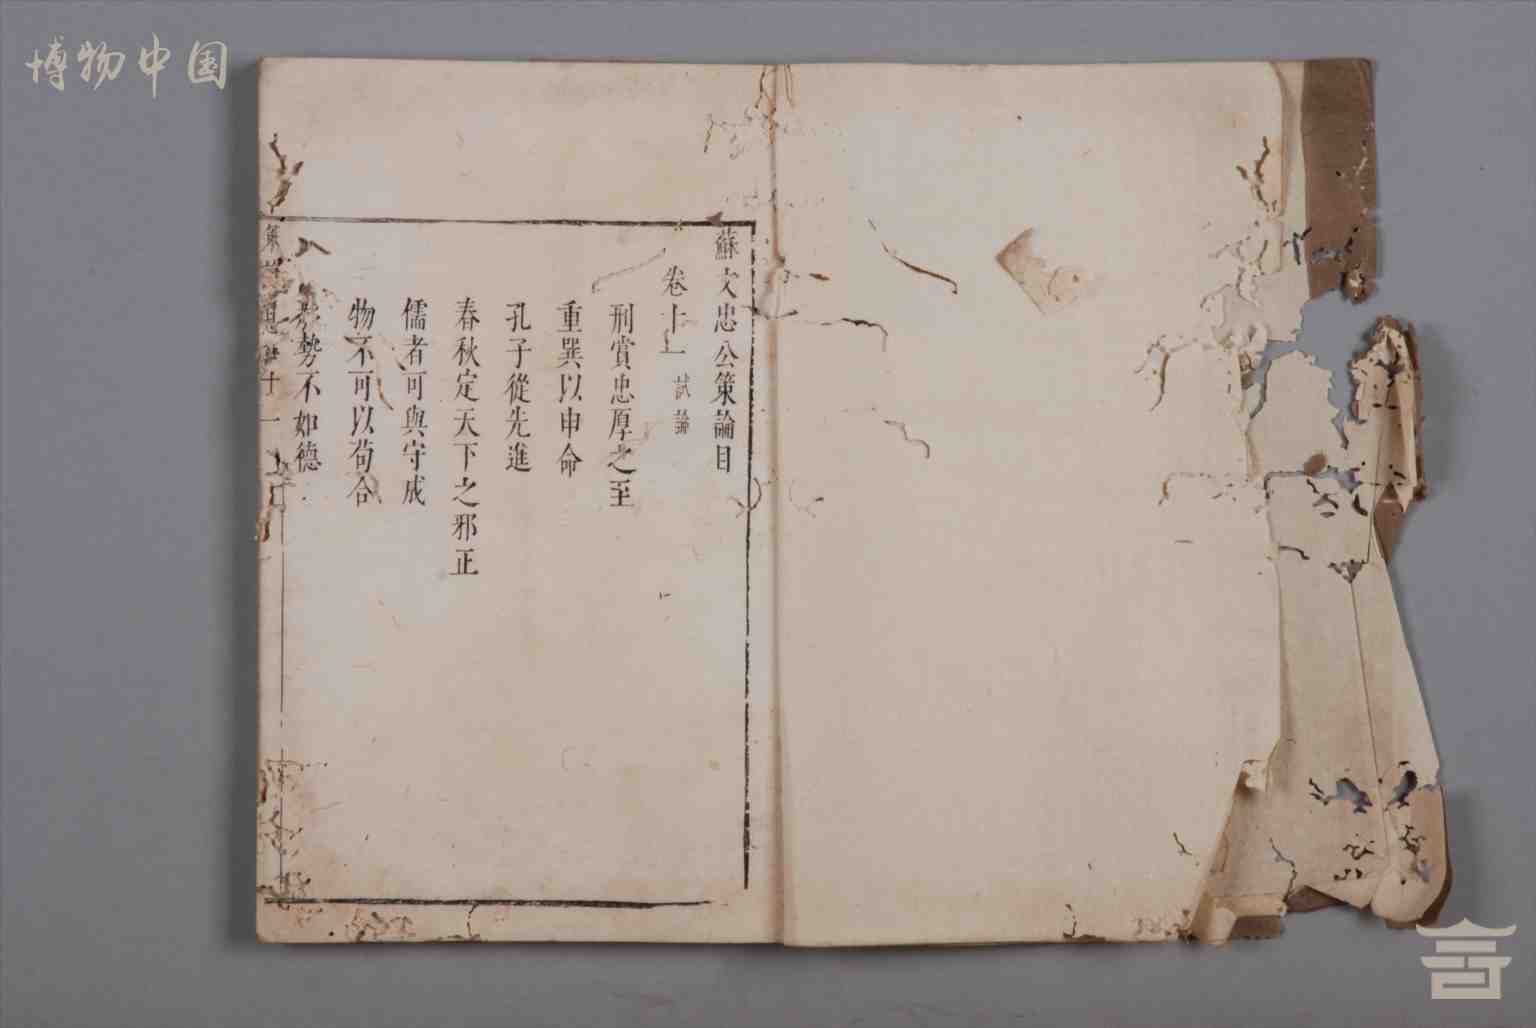 博物中国
蘇文忠公策論目
卷十一 試論
刑賞忠厚之至
重巽以申命
孔子從先進
春秋定天下之邪正
儒者可與守成
物不可以苟合
勢不如德